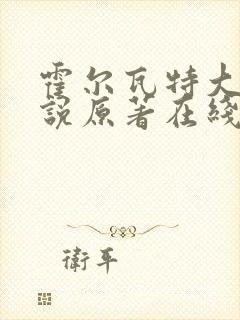 霍尔瓦特大
說原著在綫
衛平